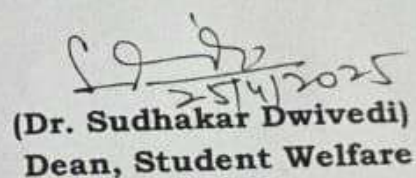 25/4/2025
(Dr. Sudhakar Dwivedi)
Dean, Student Welfare